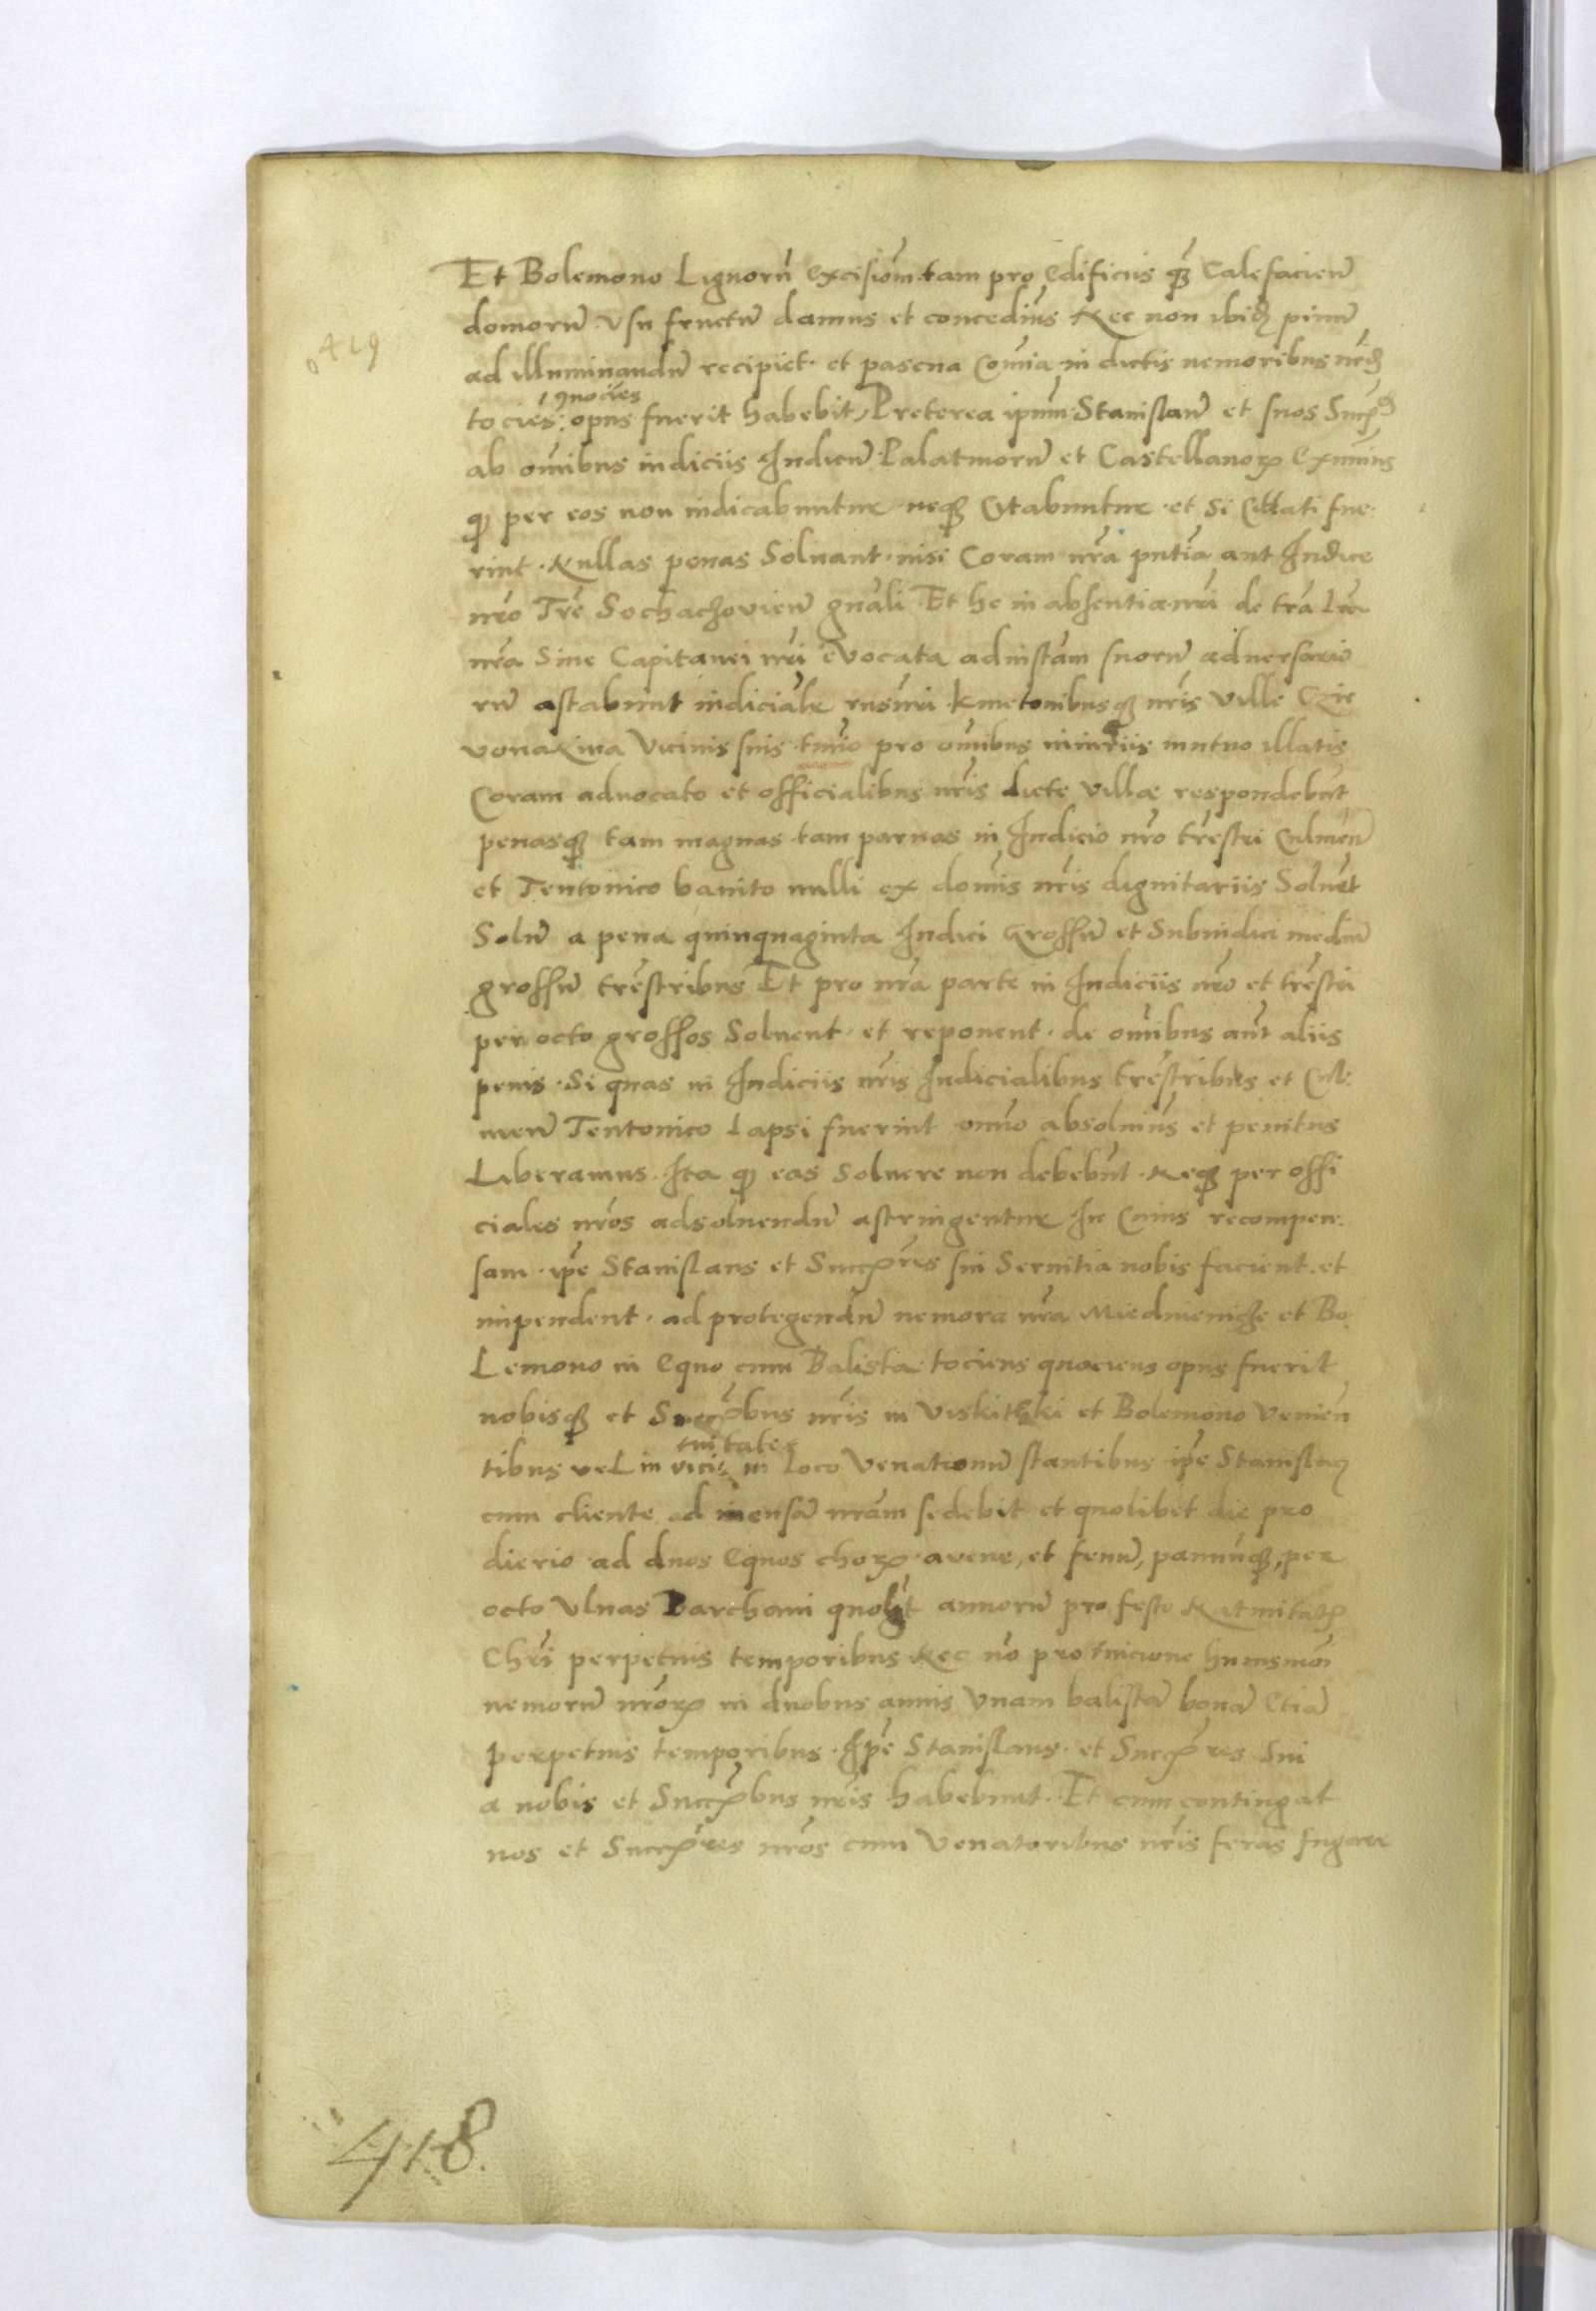 Et Bolemono Lignorũ Excisiom̃ tam pro Edificiis q̃ȝ Calefacien̄
domorũ Vsu fructũ damus et concedim̃s Nec non ibid̃ pinũ
419
ad illuminandũ recipiet et pascua Com̃ia in dictis nemoribus
quocies
tocies opus fuerit habebit, Preterea ip̃um Stanislaũ et suos
ab om̃ibus iudiciis Iudicũ Palatinorũ et Castellanoꝝ Eximim̃s
qꝫ per eos non iudicabuntur neqꝫ Citabuntur et Si Cittati fue
rint Nullas penas Soluant nisi Coram nr̃a pñtia aut Iudice
nr̃o Tr̃e Sochachovien̄ gn̄ali Et he in absentia nr̃i de tr̃a Lr̃a
nr̃a Sine Capitanei nr̃i evocata ad instam̃ suorũ aduersario
rũ astabunt Kmetonibusqꝫ nr̃is Ville
Vicinis suis tm̃o pro om̃ibus iniuriis mutuo illatis
Coram aduocato et officialibus nr̃is dicte Villae respondebũt
penasqꝫ tam magnas tam paruas in Iudicio nr̃o tr̃estri Culmen̄
et Teutonico banito nulli ex dom̃is nr̃is dignitariis Soluet
Solũ a pena quinquaginta Iudici Grossũ et Subiudici mediũ
grossũ tr̃estribus Et pro nr̃a parte in Iudiciis nr̃o et tr̃estri
per octo grossos Soluent et reponent de om̃ibus aũt aliis
penis Si quas in Iudiciis nr̃is Iudicialibus tr̃estribus et Cul
men̄ Teutonico Lapsi fuerint om̃io absoluim̃s et penitus
Liberamus Ita qꝫ eas Soluere non debebũt Neqꝫ per offi
ciales nr̃os ad soluendũ astringentur In Cuius recompen
sam ip̃e Stanislaus et Succr̃es sui Seruitia nobis facient et
impendent ad protegendũ nemora nr̃a Miedmeniche et Bo
Lemono in Equo cum Balista tociens quociens opus fuerit
nobisqꝫ et Succr̃bus nr̃is in Viskithki et Bolemono Venien
nitate
tibus vel in vici in Loco Venationũ stantibus ip̃e Stanislaꝯ
cum cliente ad mensã nr̃am sedebit et quolibet die pro
dierio ad duos Equos choꝝ avene, et fenũ, pannũqꝫ, per
octo Vlnas Barchani quolibt annorũ pro festo Natiuitatꝭ
Chr̃i perpetuis temporibus Nec nõ pro tuicione huiusmõi
nemorũ nr̃oꝝ in duobus annis Vnam balistã bonã Etiã
perpetuis temporibus Ip̃e Stanislaus et Succr̃es Sui
a nobis et Succr̃bus nr̃is habebunt Et cum contingat
nos et Succr̃es nr̃os cum Venatoribus nr̃is feras fugare
418.